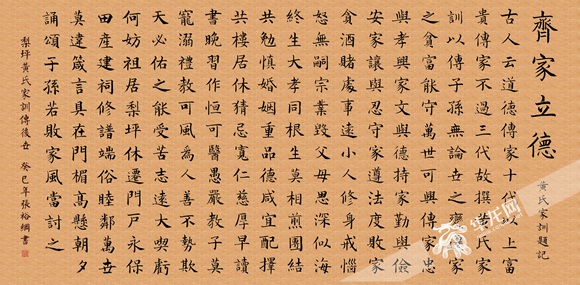 齊家立德
黃氏家訓題記
古人云道德傳家十代以上富
貴傳家不過三代故撰黃氏家
訓以傳子孫無論世之家
之貧富能守萬世可與傳家忠
與孝興家文與德持家勤與儉
安家讓與忍守家遵法度敗家
貪酒賭處事遠小人修身戒惱
怒無嗣宗業毀父母恩深似海
終生大孝同根生莫相煎團結
共勉慎婚姻重品德咸宜配擇
共棲居休猜忌寬仁慈厚早讀
書晚習作恒可醫愚嚴教子莫
寵溺禮教可風為人善不勢欺
天必佑之能受苦志遠大喫虧
何妨祖居梨坪休遷門戶永保
世産建祠修譜端俗睦鄰萬世
莫違箴言具在門楣高懸朝夕
誦頌子孫若敗家風當討之
梨坪黃氏家訓傳後世 癸巳年張裕綱書
华龙网